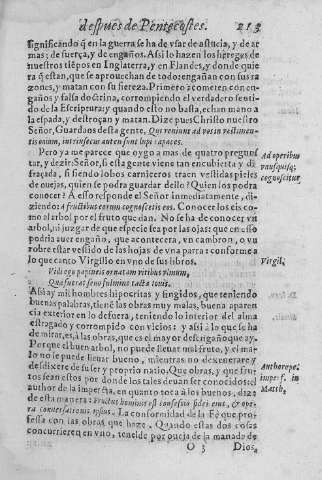 despues de Pentecostes. 213
significando q̃ en la guerra se ha de vsar de astucia, y de ar
mas; de fuerça, y de engaños. Assi lo hazen los hereges de
nuestros tiẽpos en Inglaterra, y en Flandes, y donde quie
ra q̃ estan, que se aprouechan de todo: engañan con sus ra
zones, y matan con su fiereza. Primero acometen con en-
gaños y falsa doctrina, corrompiendo el verdadero senti-
do de la Escriptura; y quando esto no basta, echan mano a
la espada, y destroçan y matan. Dize pues Christo nuestro
Señor, Guardaos desta gente, Qui veniunt ad vos in vestimen-
tis ouium, intrinsecus autem sunt lupi rapaces.
Pero ya me parece que oygo a mas de quatro pregun-
tar, y dezir: Señor, si esta gente viene tan encubierta y di
fraçada, si siendo lobos carniceros traen vestidas pieles
de ouejas, quien se podra guardar dello? Quien los podra
conocer? A esso responde el Señor inmediatamente, di-
ziendo: A fructibus eorum cognoscetis eos. Conocer los eis co-
mo al arbol por el fruto que dan. No se ha de conocer vn
arbol, ni juzgar de que especie sea por las ojas: que en esso
podria auer engaño, que acontecera, vn cambron, o vn
robre estar vestido de las hojas de vna parra conforme a
lo que canto Virgilio en vno de sus libros.
Ad operibus
vnusquisq;
cognoscitur.
Virgil.
Assi ay mil hombres hipocritas y fingidos, que teniendo
buenas palabras, tiene las obras muy malas, buena aparen
cia exterior en lo defuera, teniendo lo inferior del alma
estragado y corrompido con vicios: y assi a lo que se ha
de mirar, es, a las obras, que es el mayor desengaño que ay.
Por que el buen arbol, no puede lleuar mal fruto, y el ma
lo no le puede lleuar bueno, mientras no degenerare y
desdixere de su ser y proprio natio. Que obras, y que fru-
tos sean estos por donde los tales deuan ser conocidos: el
author de la imperfecta, en quanto toca a los buenos, dize
desta manera: Fructus hominis est confessio fidei eius, & ope-
ra conuersationis ipsius. La conformidad de la Fè que pro-
fessa con las obras que haze. Quando estas dos cosas
concurrieren en vno, tenelde por oueja de la manada de
Author ope.
imperf. in
Matth.
O 3 Dios,